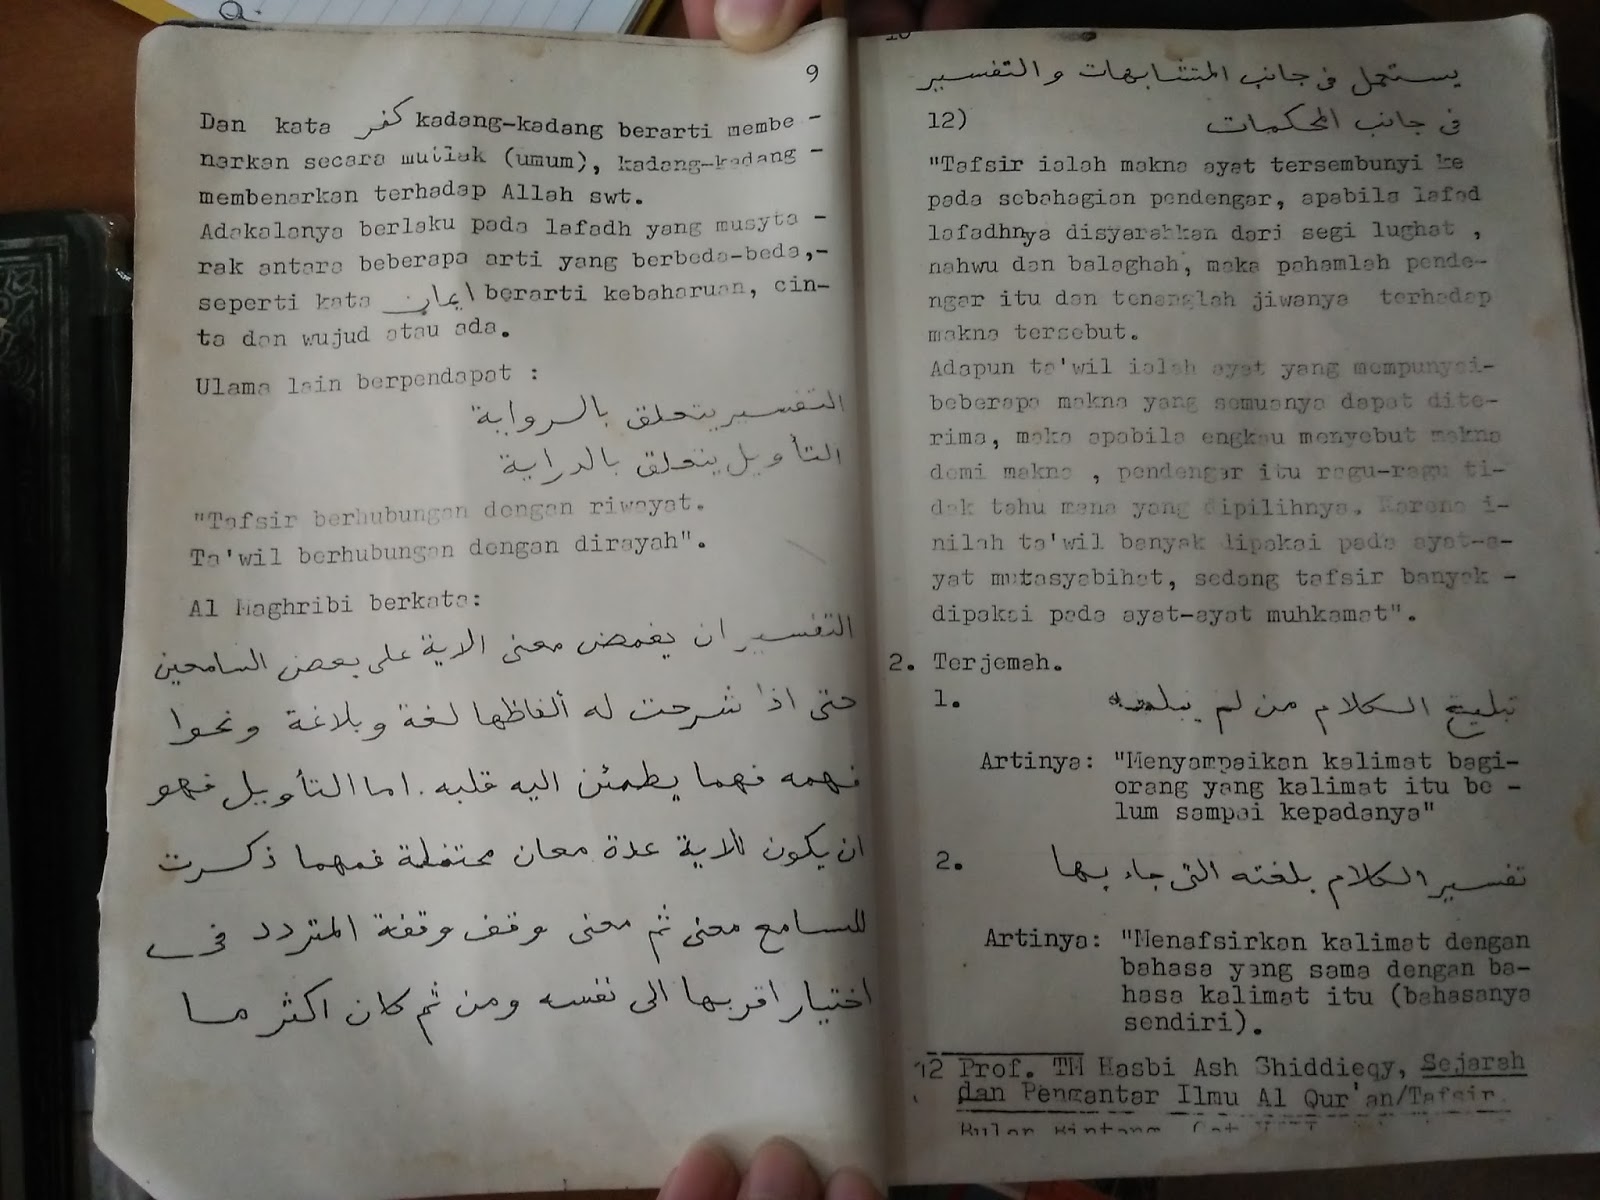 9
Dan kata كفر kadang-kadang berarti membe -
narkan secara mutlak (umum), kadang-kadang -
membenarkan terhadap Allah swt.
Adakalanya berlaku pada lafadh yang musyta -
rak antara beberapa arti yang berbeda-beda,-
seperti kata ايمان berarti kebaharuan, cin-
ta dan wujud atau ada.
Ulama lain berpendapat :
التفسير يتعلق بالرواية
التأويل يتعلق بالدراية
"Tafsir berhubungan dengan riwayat.
Ta'wil berhubungan dengan dirayah".
Al Maghribi berkata:
التفسير ان يغمض معنى الاية على بعض السامعين
حتى اذا شرحت له ألفاظها لغة وبلاغة ونحوا
فهمه فهما يطمئن اليه قلبه. اما التأويل فهو
ان يكون للاية عدة معان محتملة فمهما ذكرت
للسامع معنى ثم معنى وقف وقفة المتردد فى
اختيار اقربها الى نفسه ومن ثم كان اكثر ما
10
يستعمل فى جانب المتشابهات والتفسير
فى جانب المحكمات 12)
"Tafsir ialah makna ayat tersembunyi ke
pada sebahagian pendengar, apabila lafad
lafadhnya disyarahkan dari segi lughat ,
nahwu dan balaghah, maka pahamlah pende-
ngar itu dan tenanglah jiwanya terhadap
makna tersebut.
Adapun ta'wil ialah ayat yang mempunyai-
beberapa makna yang semuanya dapat dite-
rima, maka apabila engkau menyebut makna
demi makna , pendengar itu ragu-ragu ti-
dak tahu mana yang dipilihnya. Karena i-
nilah ta'wil banyak dipakai pada ayat-a-
yat mutasyabihat, sedang tafsir banyak -
dipakai pada ayat-ayat muhkamat".
2. Terjemah.
1. تبليغ الكلام من لم يبلغه
Artinya: "Menyampaikan kalimat bagi-
orang yang kalimat itu be -
lum sampai kepadanya"
2. تفسير الكلام بلغته التى جاء بها
Artinya: "Menafsirkan kalimat dengan
bahasa yang sama dengan ba-
hasa kalimat itu (bahasanya
sendiri).
12 Prof. TM Hasbi Ash Shiddieqy, Sejarah
dan Pengantar Ilmu Al Qur'an/Tafsir
Bulan Bintang,